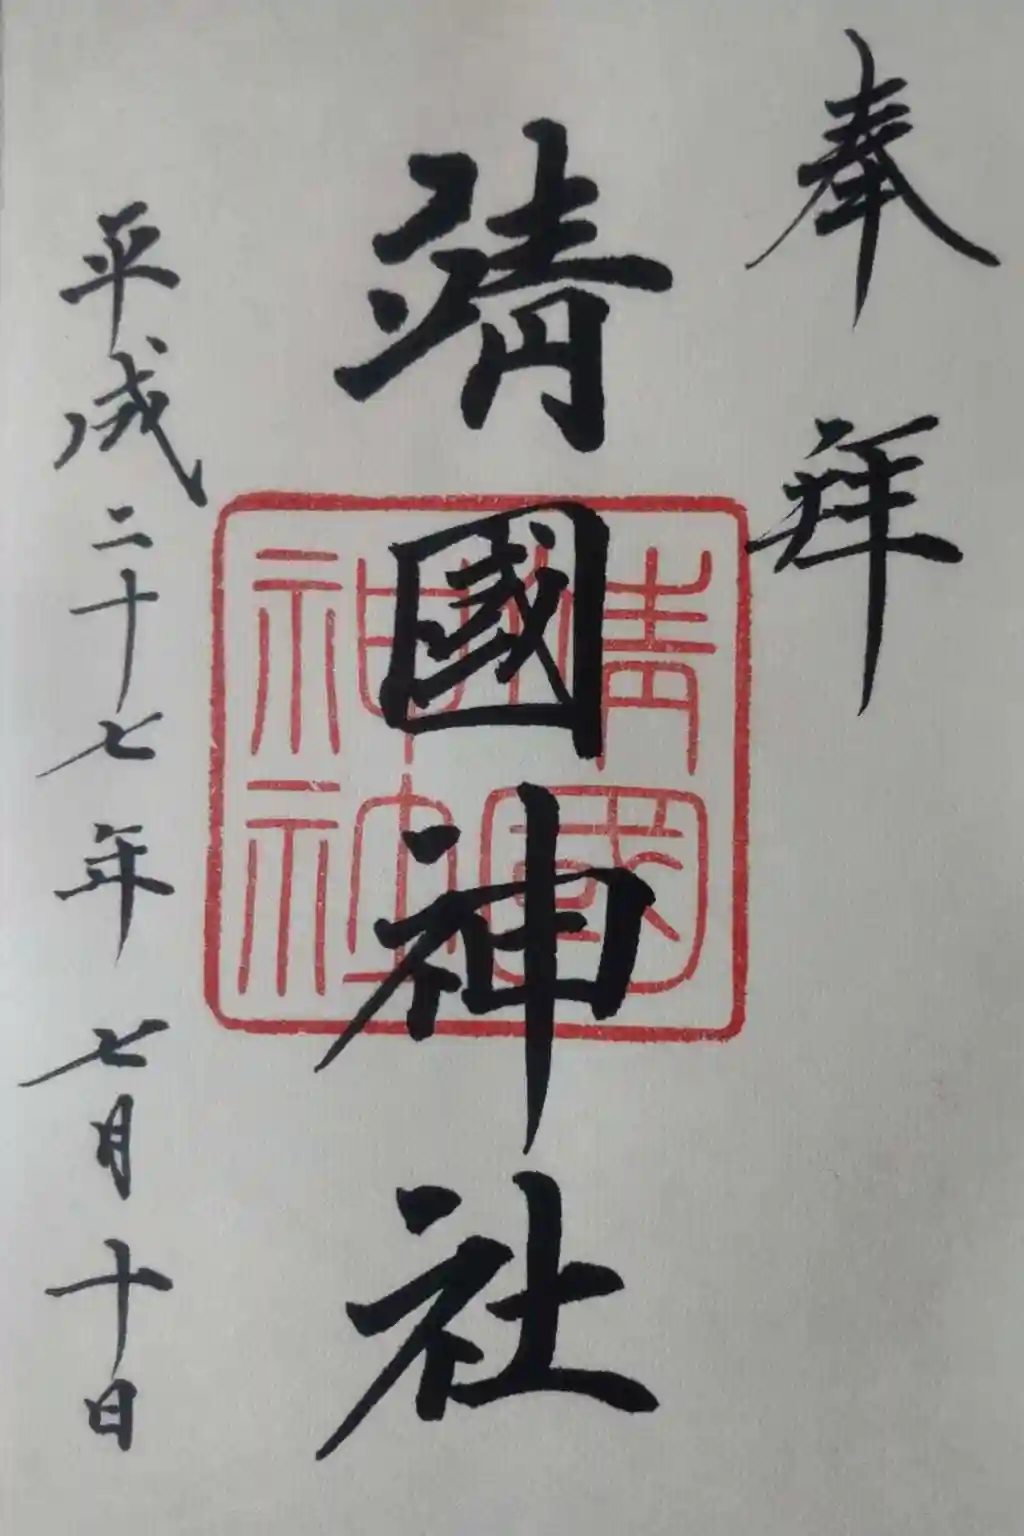 奉拝
靖國神社
靖國
神社
平成二十七年七月十日